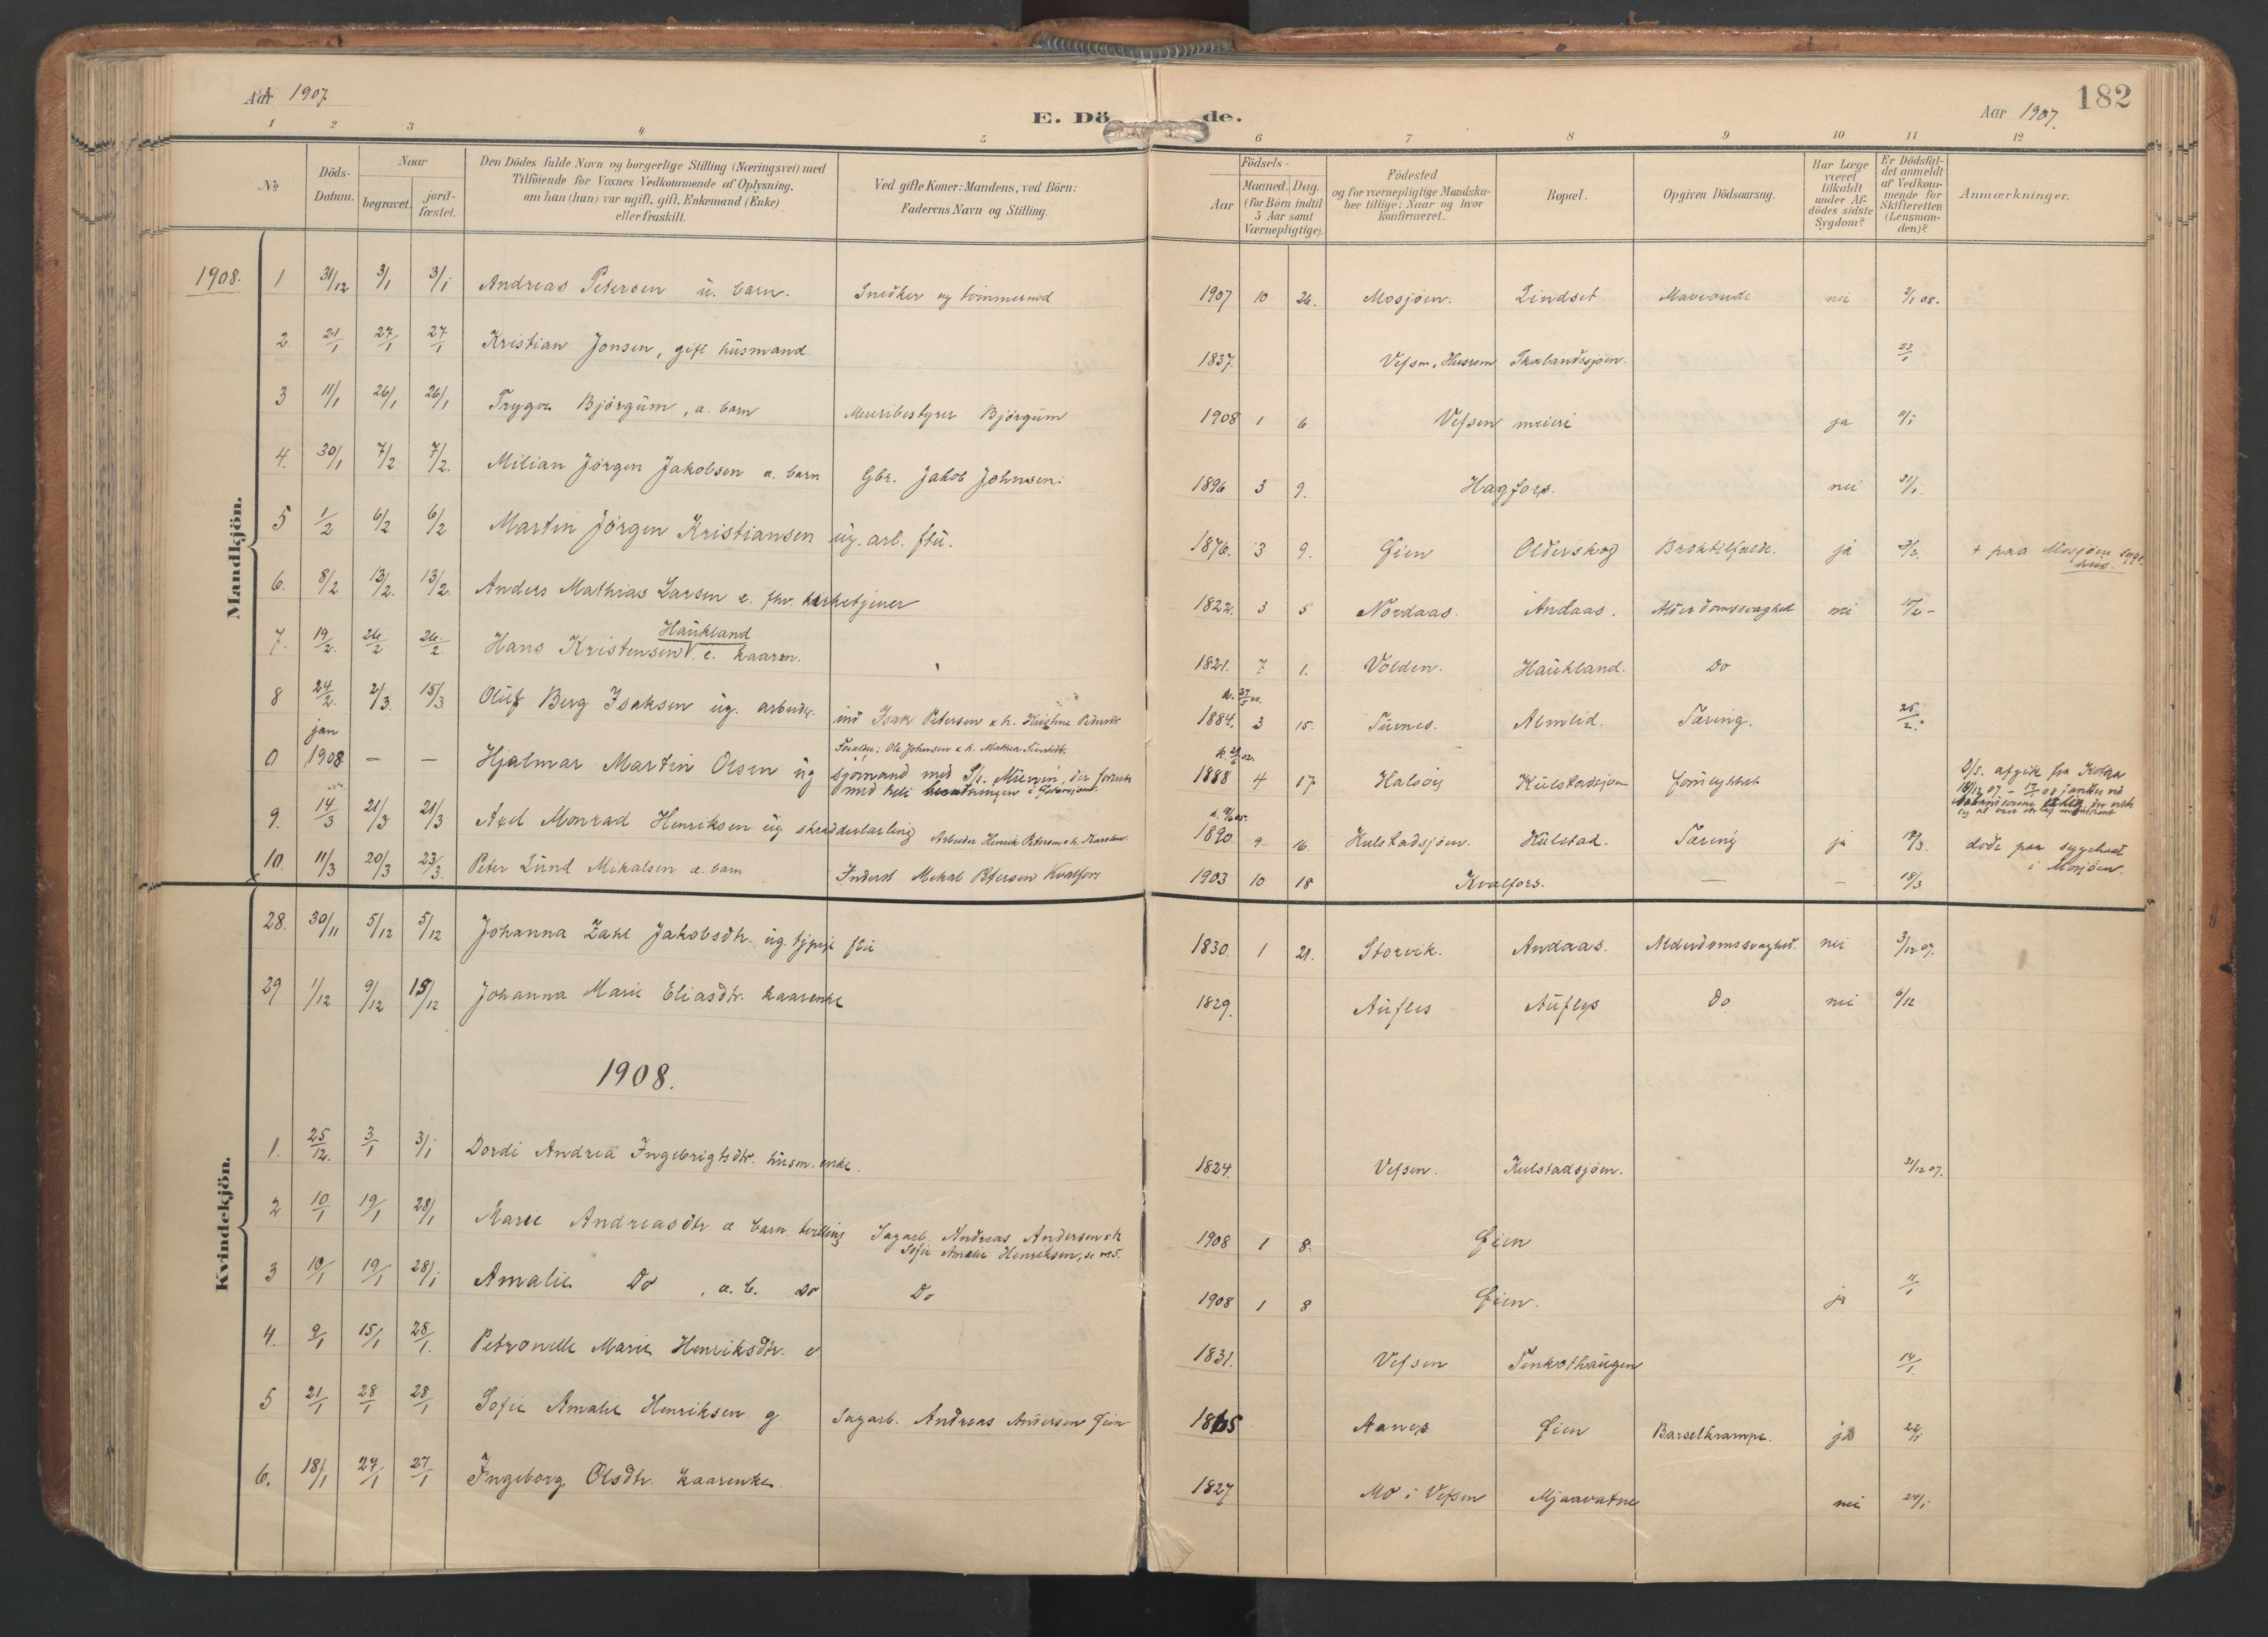 Aar 1907
E. Dö de.
Aar 1907.
182
1 2 3 4 5 6 7 8 9 10 11 12
No
Döds-
Datum.
Naar
begravet.
jord-
fæstet.
Den Dödes fulde Navn og borgerlige Stilling (Næringsvei) med
Tilföiende for Voxnes Vedkommende af Oplysning,
om han (hun) var ugift, gift, Enkemand (Enke)
eller fraskilt.
Ved gifte Koner: Mandens, ved Börn:
Faderens Navn og Stilling.
Födsels-
Aar
Maaned. Dag.
(for Börn indtil
5 Aar samt
Værnepligtige).
Födested
og for værnepligtige Mandska-
ber tillige: Naar og hvor
konfirmeret.
Bopæl.
Opgiven Dödsaarsag.
Har Læge
været
tilkaldt
under Af-
dödes sidste
Sygdom?
Er Dödsfal-
det anmeldt
af Vedkom-
mende for
Skifteretten
(Lensman-
den)?
Anmærkninger.
Mandkjön.
1908. 1 31/12 3/1 3/1 Andreas Petersen u. barn. Snedker og tømmermd 1907 10 26. Mosjøen. Lindset nei 2/1 08.
2 21/1 27/1 27/1 Kristian Jonsen, gift husmand 1837. Vefsn, Husrem 23/1
3 11/1 26/1 26/1 Trygve Bjørgum, a. barn Meieribestyrer Bjørgum 1908 1 6 Vefsen meieri ja
4. 30/1 7/2 7/2. Milian Jørgen Jakobsen a. barn Gbr. Jakob Johnsen. 1896 3 9. Hagfors. nei 31/1
5 1/2 6/2 6/2 Martin Jørgen Kristiansen ug. arb. ftu. 1876. 3 9. Øien Olderskog Broktilfælde. ja 3/2. + paa Mosjøen syge-
hus.
6. 8/2 13/2. 13/2. Anders Mathias Larsen e. fhv. kirketjener 1822. 3 5 Nordaas. Andaas. Alderdomssvaghed nei
7. 19/2. 26/2 26/2 Hans Kristensen Haukland e. kaarm. 1821. 7 1. Volden. Haukland. Do
8 24/2. 2/3. 15/3 Oluf Berg Isaksen ug. arbeider. ind Isak Petersen & h. Kristine Pedersdtr 1884. 3 15. Turmoes. Almlid. Tæring. 25/2.
jan
0 1908 — — Hjalmar Martin Olsen ug sjømand med S/s. der forsvandt
Forældre: Ole Johnsen & h.
med hele besætningen i
1888 4 17 Halsøy Kulstadsjøen forulykket
9. 14/3 21/3 21/3 Axel Monrad Henriksen ug skrædderlærling Arbeider Henrik Petersen & h. 1890 9 16 Kulstadsjøen. Kulstad. Tæring ja 17/3. døde paa sygehuset
i Mosjøen.
10. 11/3 20/3 23/3. Peter Lund Mikalsen æ. barn Inderst Mikal Petersen Kvalfors 1903 10 18 Kvalfors. — — 18/3
Kvindekjön.
28. 30/11 5/12 5/12 Johanna Zahl Jakobsdtr. ug. tjpige ftu 1830. 1 21. Storvik. Andaas. Alderdomssvaghed. nei 3/12 07.
29 1/12 9/12 15/12 Johanna Marie Eliasdtr. kaarenke 1829. Aufles Aufles Do nei 6/12
1908.
1. 25/12. 3/1 3/1 Dordi Andrea Ingebrigtsdtr. husm. enke. 1824. Vefsen. Kulstadsjøen. 31/12 07.
2 10/1 19/1 28/1 Marie Andreasdtr æ barn tvilling Sagarb. Andreas Andersen & h
Sofie Amalie Henriksen, se no 5. 1908 1 8. Øien
3 10/1 19/1 28/1 Amalie Do , æ. b. do Do 1908 1 8 Øien. ja 11/1
4. 9/1 15/1 28/1. Petronelle Marie Henriksdtr. e 1831. Vefsen 14/1.
5 21/1 28/1 28/1 Sofie Amalie Henriksen g Sagarb. Andreas Andersen Øien 1865 Aanes Øien Barselkrampe. ja 22/1
6. 18/1 27/1 27/1 Ingeborg Olsdtr. kaarenke. 1827. Mo i Vefsen Mjaavatne nei 24/1